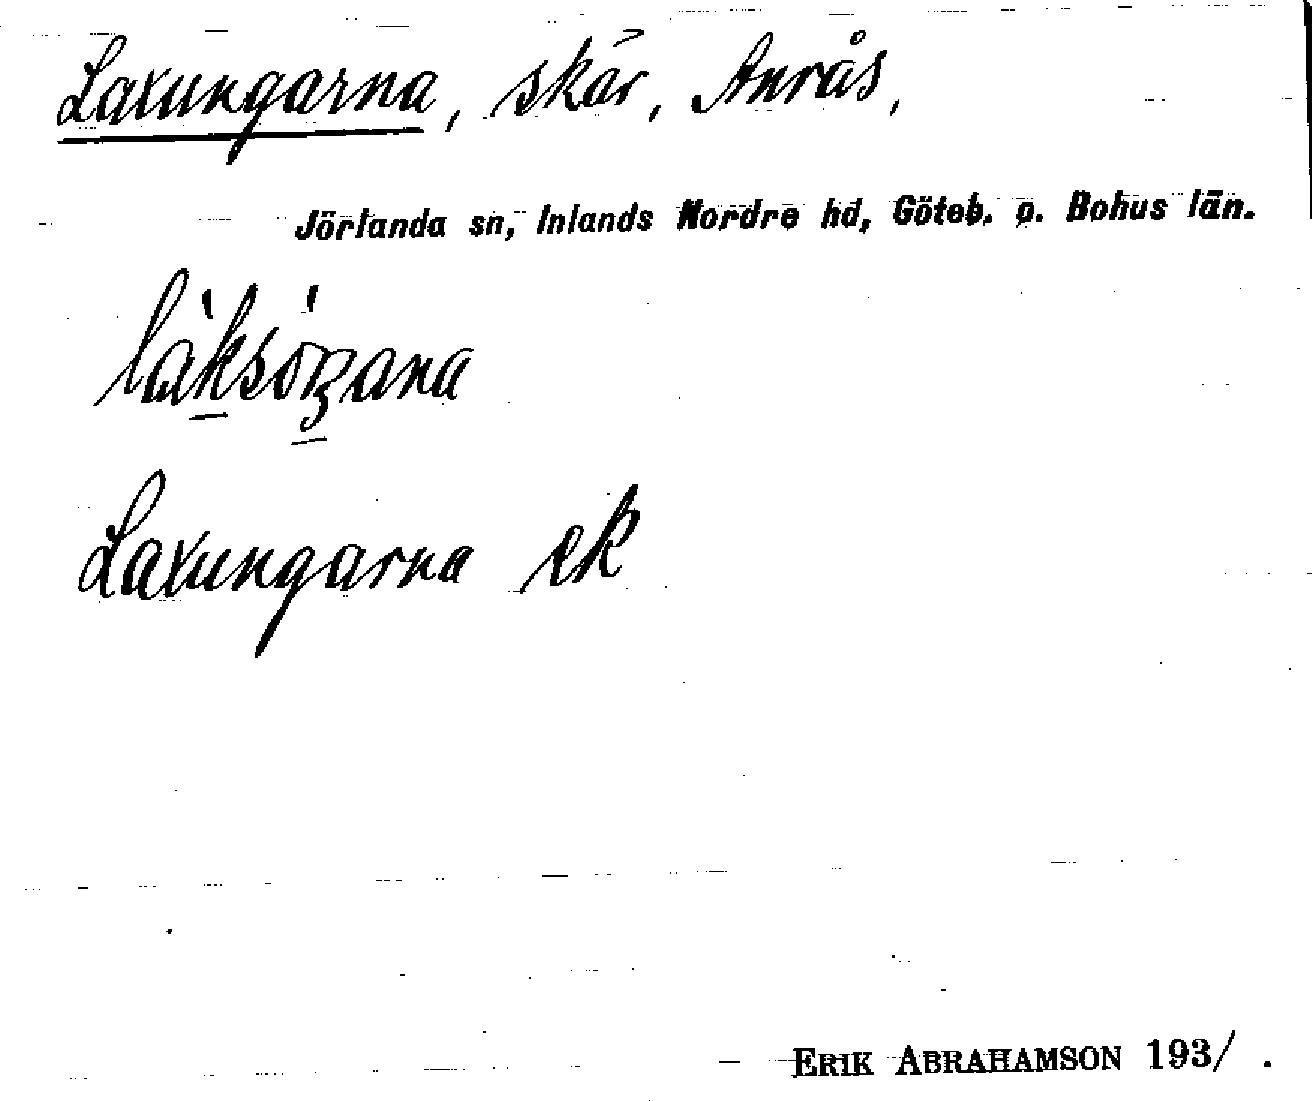 Laxungarna, skär, Anrås,
Jörlanda sn, Inlands Nordre hd, Göteb. o. Bohus län.
Laxungarna ek
ERIK ABRAHAMSON 193/ .